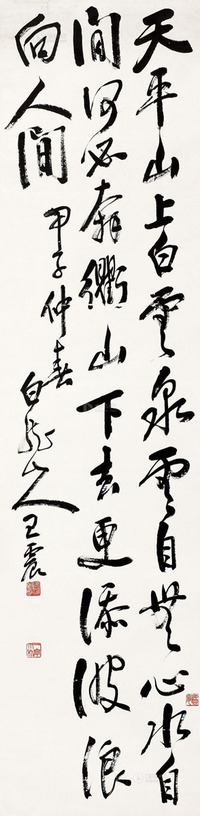 天平山上白云泉云自无心水自
间何必奔冲山下去更添波浪
向人间
甲子仲春白龙山人王震